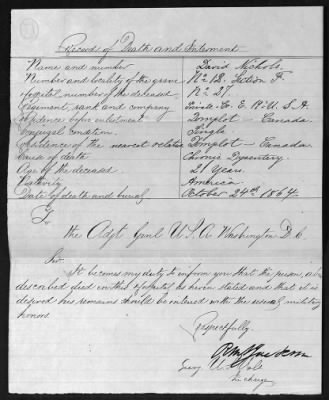 Record of Death and Interment
Name and number David Nichols.
Number and locality of the grave No 12. Section F.
Hospital number of the deceased No 27
Regiment, rank and company Private Co E U.S.A.
Residence before enlistment Canada.
Conjugal condition Single
Residence of the nearest relative Canada.
Cause of death Chronic Dysentery.
Age of the deceased 21 Years.
Nativity America
Date of death and burial October 24th 1864.
To
the Adgt Genl U.S.A. Washington D.C.
Sir.
It becomes my duty to inform you that the person, abv
described died in this hospital as herein stated and that it is
desired his remains should be interred with the usual military
honors
Respectfully.
Surg U.S. Vols
In charge